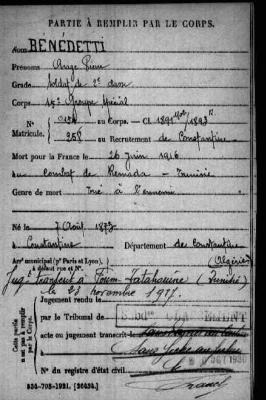 PARTIE À REMPLIR PAR LE CORPS.
Nom BÉNÉDETTI
Prénoms Ange
Grade Soldat de 2e classe
Corps 15e Groupe Spécial
N° au Corps. — Cl. 1891
Matricule. 258 au Recrutement de Constantine
Mort pour la France le 26 Juin 1916
au combat de Remada - Tunisie
Genre de mort Tué à l'ennemi
Né le 7 Août 1873
à Constantine Département de Constantine
Arrt municipal (pr Paris et Lyon), (Algérie)
à défaut rue et N°
à Foum-Tatahouine (Tunisie)
le 23 novembre 1917.
Cette partie n'est pas à remplir par le Corps.
Jugement rendu le
par le Tribunal de
acte ou jugement transcrit le
à
N° du registre d'état civil
534-708-1921. [26434.]